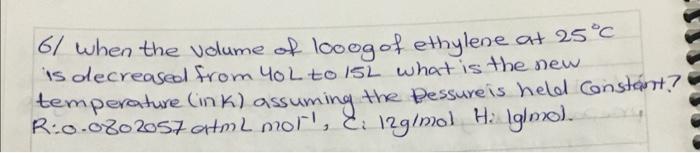 6/ when the volume of 1000g of ethylene at 25°C
is decreased from 40L to 15L what is the new
temperature (in K) assuming the Pessure is held constant?
R: 0.0802057 atm L mol⁻¹, C: 12g/mol H: 1g/mol.